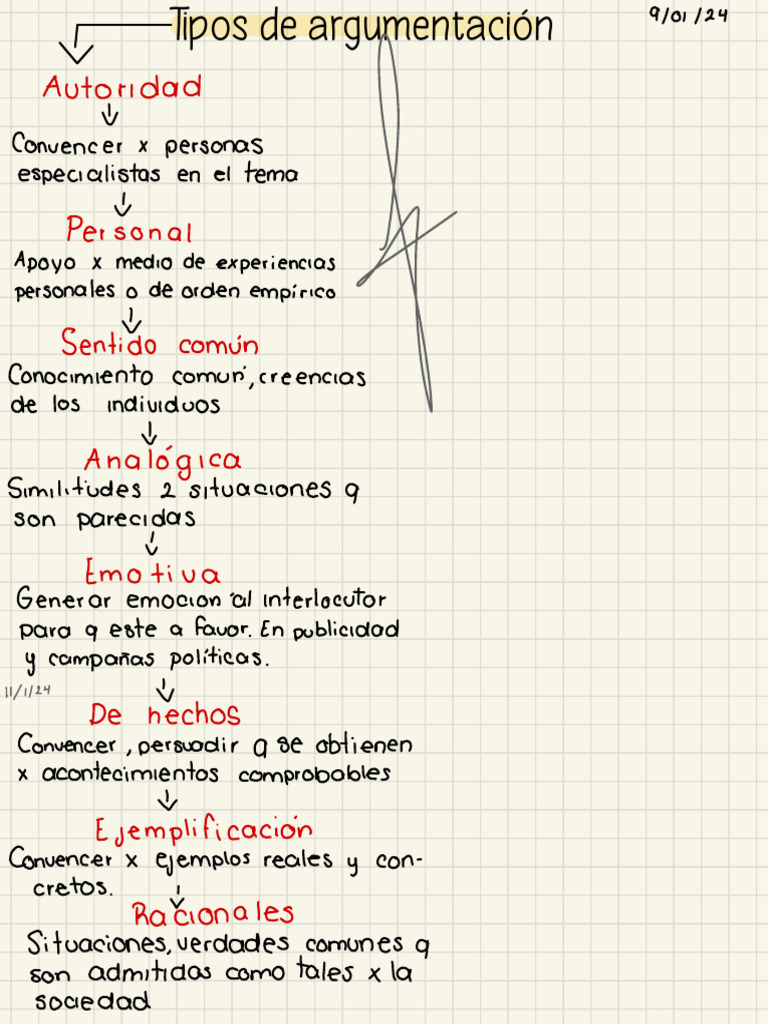 Tipos de argumentación
9/01/24
Autoridad
Convencer x personas
especialistas en el tema
Personal
Apoyo x medio de experiencias
personales o de orden empírico
Sentido común
Conocimiento comun, creencias
de los individuos
Analógica
Similitudes 2 situaciones q
son parecidas
Emotiva
Generar emocion al interlocutor
para q este a favor. En publicidad
y campañas políticas.
11/1/24
De hechos
Convencer, persuadir q se obtienen
x acontecimientos comprobables
Ejemplificación
Convencer x ejemplos reales y con-
cretos.
Racionales
Situaciones, verdades comunes q
son admitidas como tales x la
sociedad